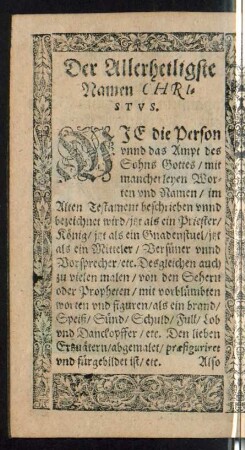 Der Allerheiligste
Namen CHRI-
STVS.
WJE die Person
vnnd das Ampt des
Sohns Gottes / mit
mancherleyen Wor-
ten vnd Namen / im
Alten Testament beschrieben vnnd
bezeichnet wird / jtzt als ein Priester /
König / jtzt als ein Gnadenstuel / jtzt
als ein Mitteler / Versüner vnnd
Vorsprecher / etc. Desgleichen auch
zu vielen malen / von den Sehern
oder Propheten / mit vorblümbten
worten vnd figuren / als ein brand /
Speiß / Sünd / Schuld / Füll / Lob
vnd Danckopffer / etc. Den lieben
Ertzuätern / abgemalet / præfiguriret
vnd fürgebildet ist / etc. Also